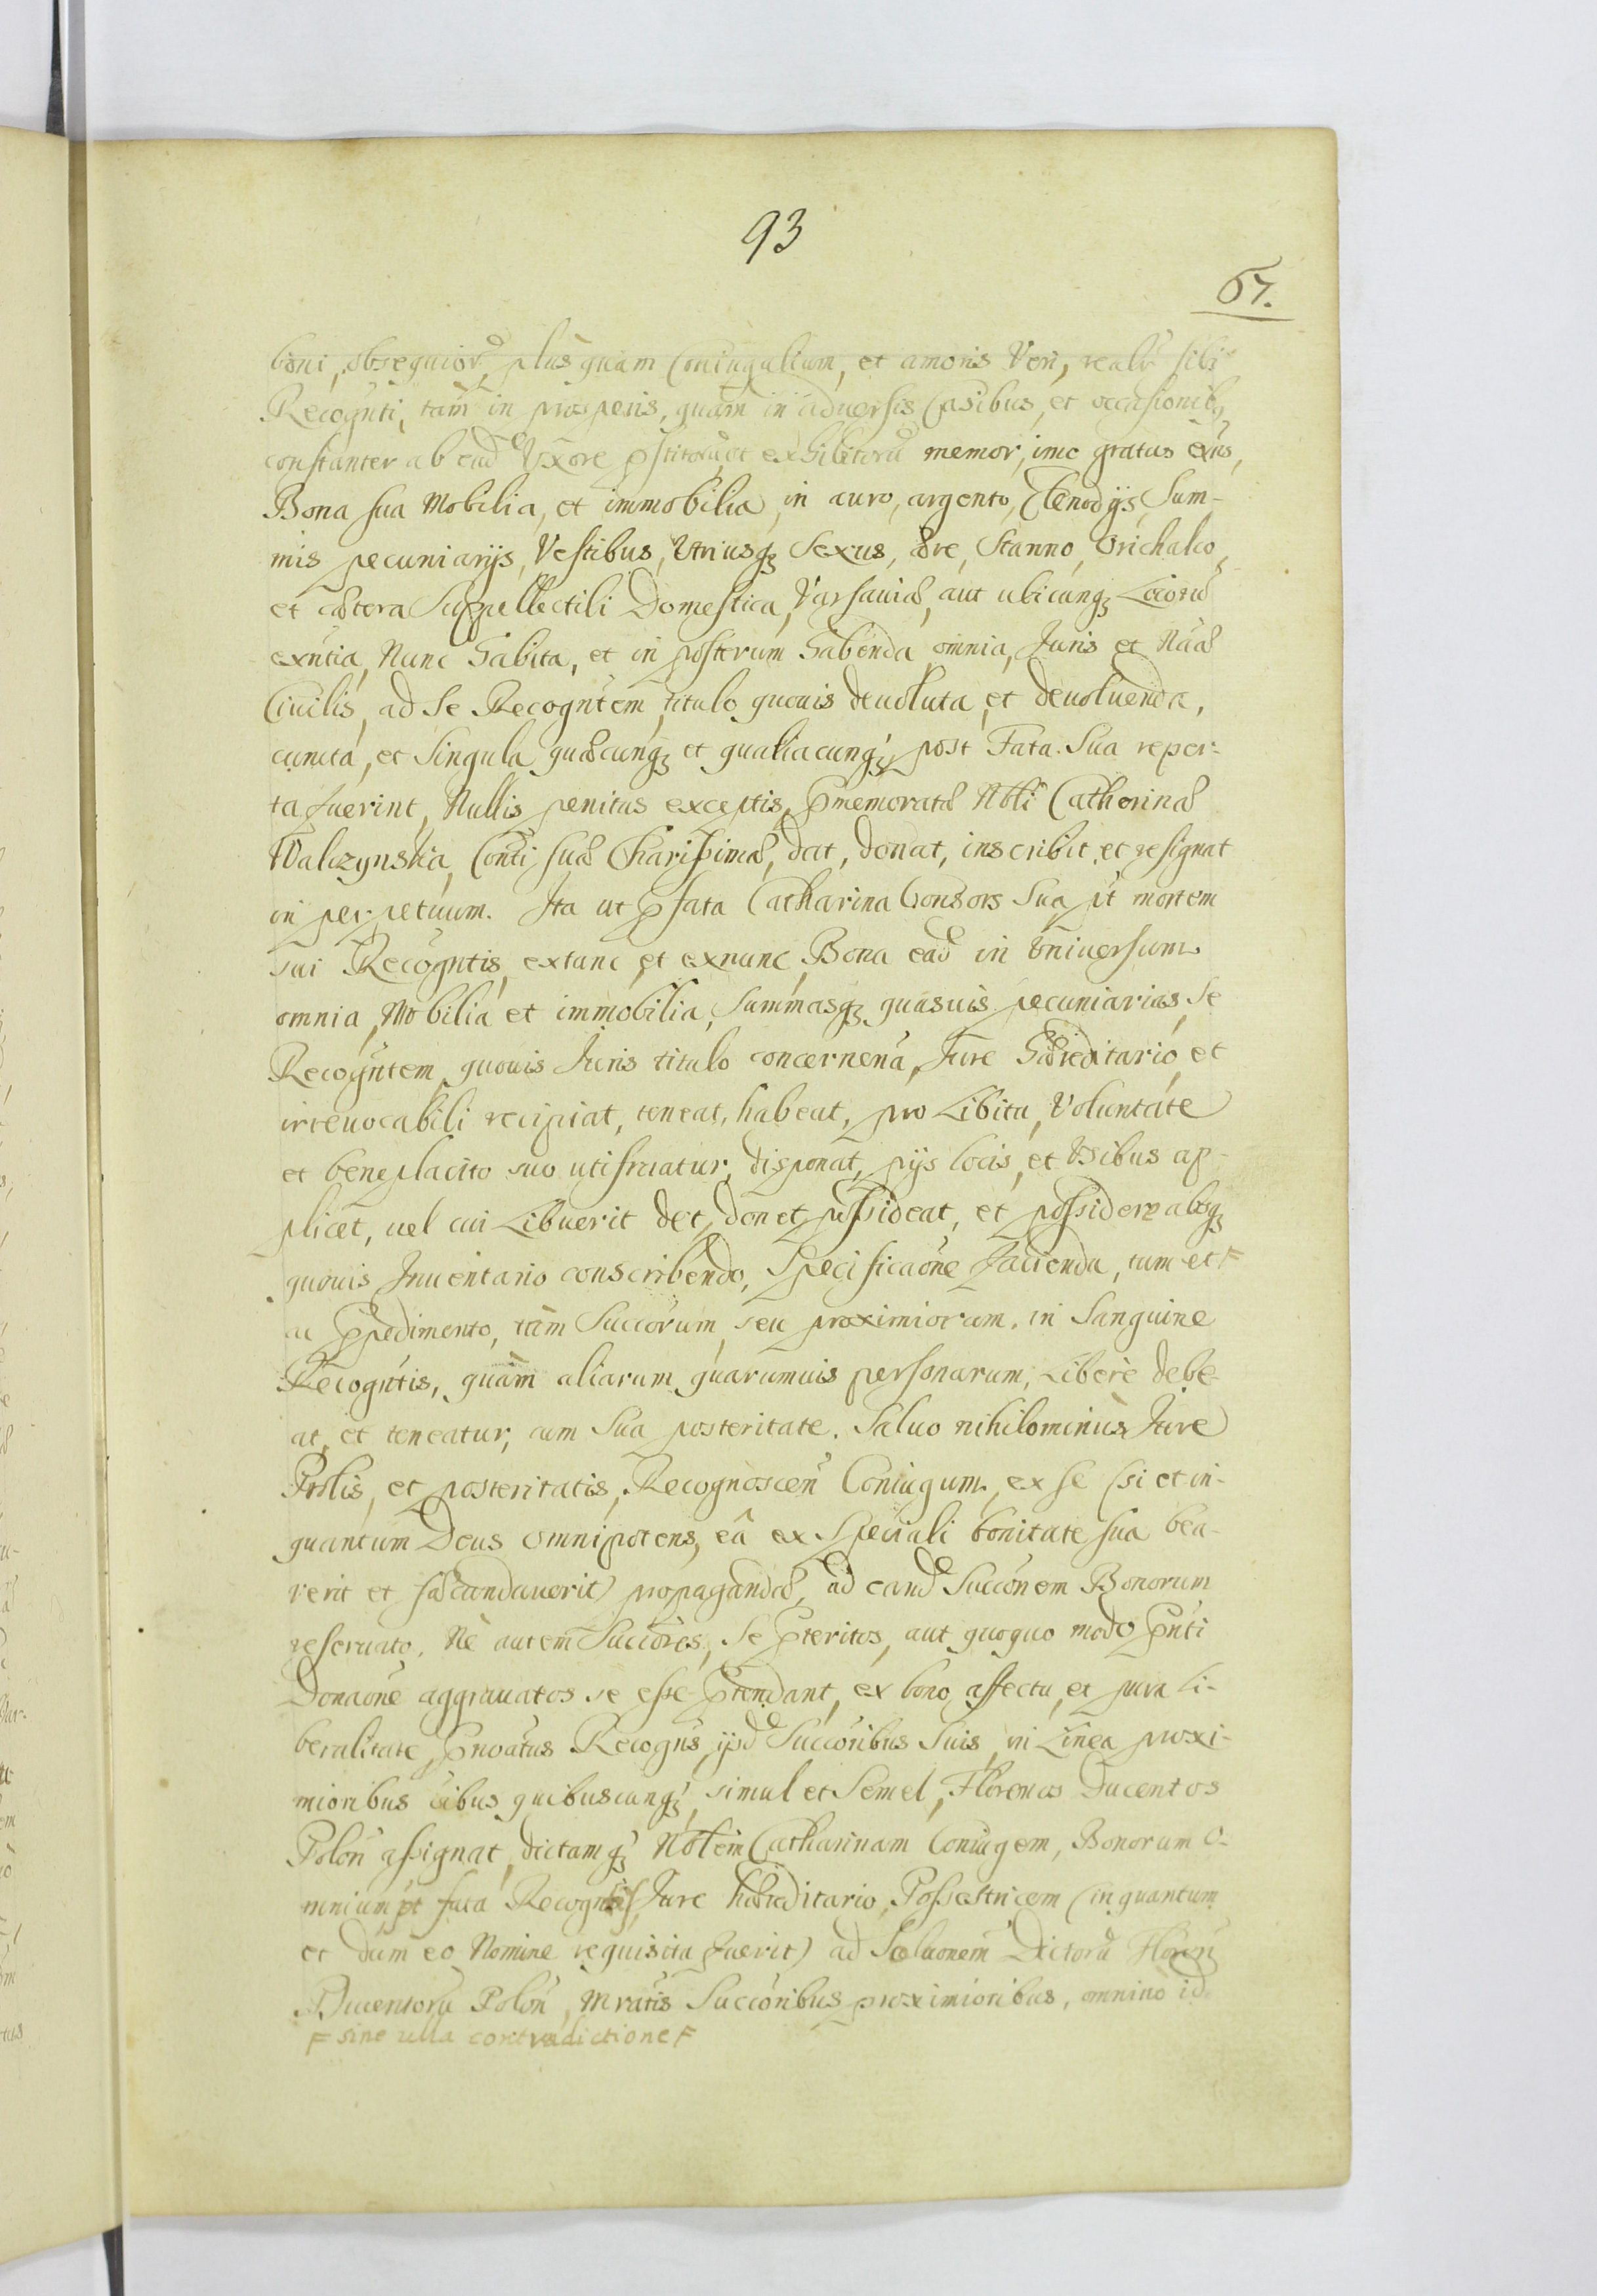 93
67.
boni, obsequiorũ plus quam Coniugalium, et amoris Veri, realr sibi
Recognti, tam in prosperis, quàm in aduersis Casibus, et occasionibq
constanter ab ead Uxore pstitorũ et exhibitorũ memor, imo gratus exñs,
Bona sua Mobilia, et immobilia, in auro, argento, Clenodijs, Sum-
mis pecuniarijs, Vestibus, Utriusqȝ Sexus, ære, Stanno, Orichalco,
et cætera Suppellectili Domestica, Varsauiæ, aut ubicunqȝ Locorũ
exñtia, Nunc habita, et in posterum habenda omnia, Juris et Nãæ
Ciuilis, ad se Recogntem, titulo quouis deuoluta, et deuoluenda,
cuncta, et singula quæcunqȝ et qualiacunqȝ post Fata Sua reper-
ta fuerint, Nullis penitus exceptis, pmemoratæ Nobli Catherinæ
Walczynskia, Conti suæ Charissimæ, dat, donat, inscribit, et resignat
in perpetuum. Ita ut pfata Catharina Consors Sua pt mortem
sui Recogntis, extunc, et exnunc Bona ead in Universum
omnia, Mobilia et immobilia, summasqȝ quasuis pecuniarias, se
Recogntem, quouis Juris titulo concernena, Jure hæreditario, et
irreuocabili recipiat, teneat, habeat, pro Libitu, Voluntate
et beneplacito suo utifruatur, disponat, pijs locis, et Usibus ap-
plicet, uel cui Libuerit det, donet, possideat, et possidere absqȝ
quouis Inuentario conscribendo, Specificaone facienda, tum et F
ac ppedimento, tàm Succorum, seu proximiorum in Sanguine
Recogntis, quàm aliarum quarumuis personarum, Liberè debe-
at, et teneatur, cum Sua posteritate. Saluo nihilominus Jure
Prolis, et posteritatis, Recognoscen Coniugum, ex se (si et in-
quantum Deus omnipotens, eâ ex Speciali bonitate sua bea-
rerit et fæcundauerit) propagandæ, ad eand Succonem Bonorum
reseruato. Nè autem Succores, se pteritos, aut quoquo modo pnti
Donaone aggrauatos se esse ptendant, ex bono affectu, et pura li-
beralitate, pnoatus Recogns, ijsd Succoribus Suis, in Linea proxi-
mioribus quibuscunqȝ, simul et Semel, Florenos Ducentos
Polon assignat, dictamqȝ Noblem Catharinam Coniugem, Bonorum o-
mnium pt fata Recogntis, Jure hæreditario, Possestricem (inquantum
et dum eo Nomine requisita fuerit) ad Soluonem Dictorũ Floren
Ducentorũ Polon, Mratis Succoribus proximioribus, omnino id
F sine ulla contradictione F